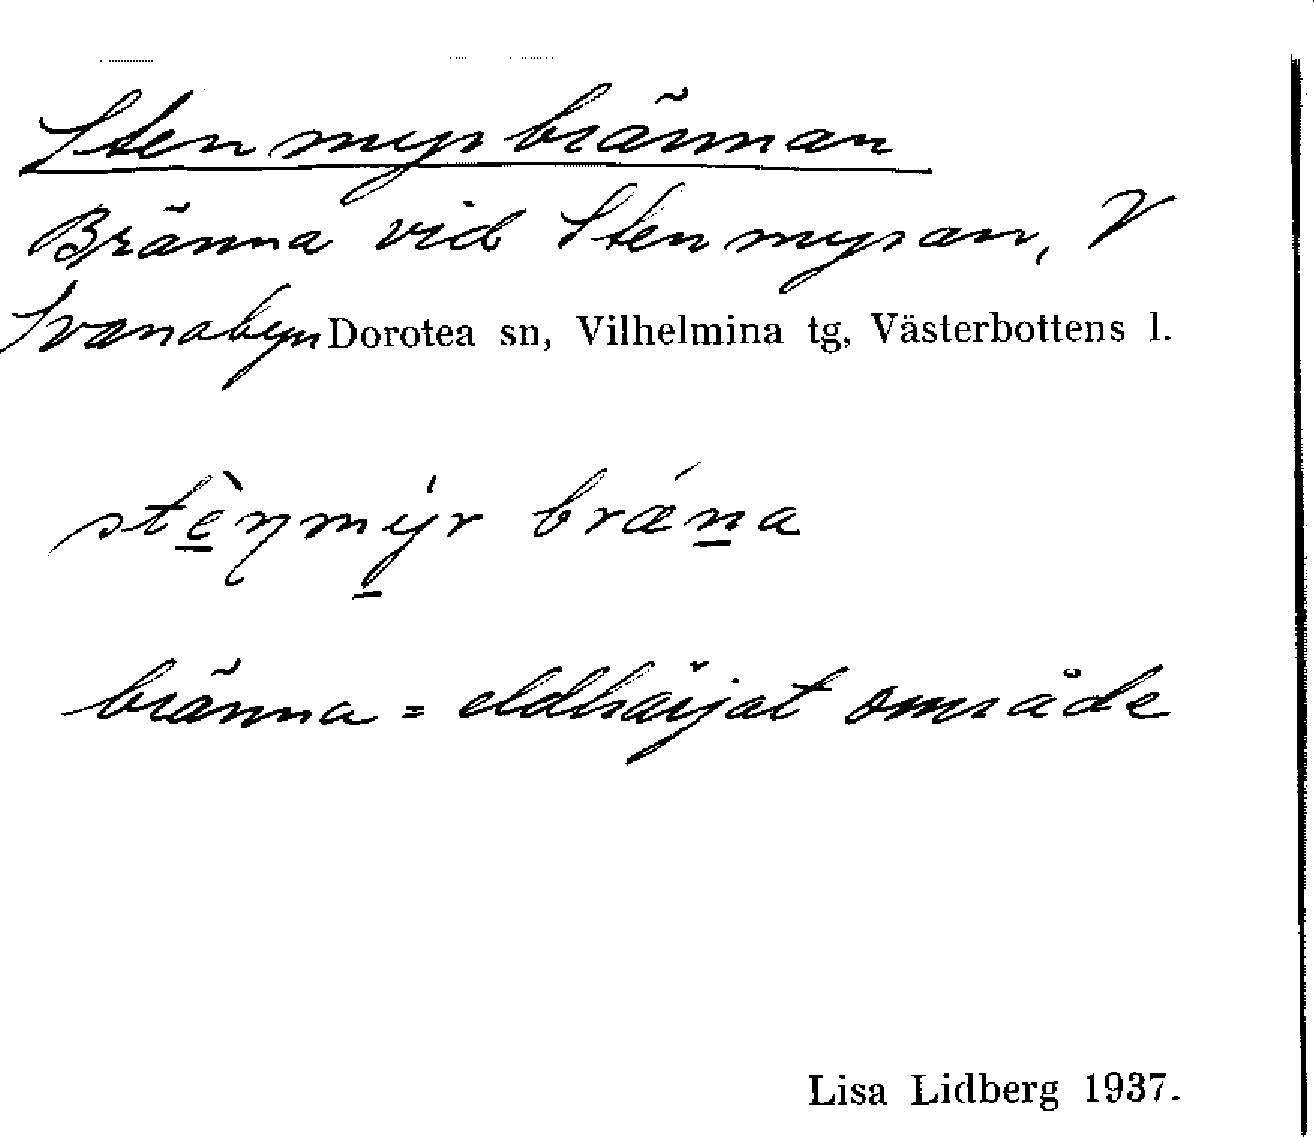 Stenmyrbrännan
Bränna vid Stenmyran, V
Svanabyn Dorotea sn, Vilhelmina tg, Västerbottens l.
stè̱ŋmý̱r brǽṉa
bränna = eldhärjat område
Lisa Lidberg 1937.